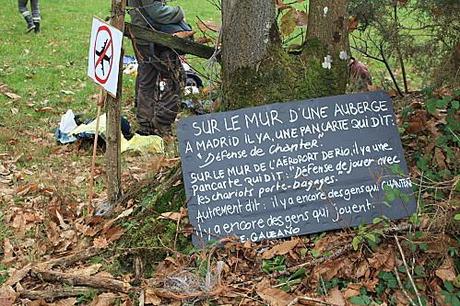 SUR LE MUR D'UNE AUBERGE
A MADRID IL Y A, UNE PANCARTE QUI DIT:
"Défense de Chanter".
SUR LE MUR DE L'AÉROPORT DE RIO, il y a une
pancarte qui dit: "Défense de jouer avec
les chariots porte-bagages.
Autrement dit: il y a encore des gens qui CHANTENT
il y a encore des gens qui jouent.
E. GALEANO